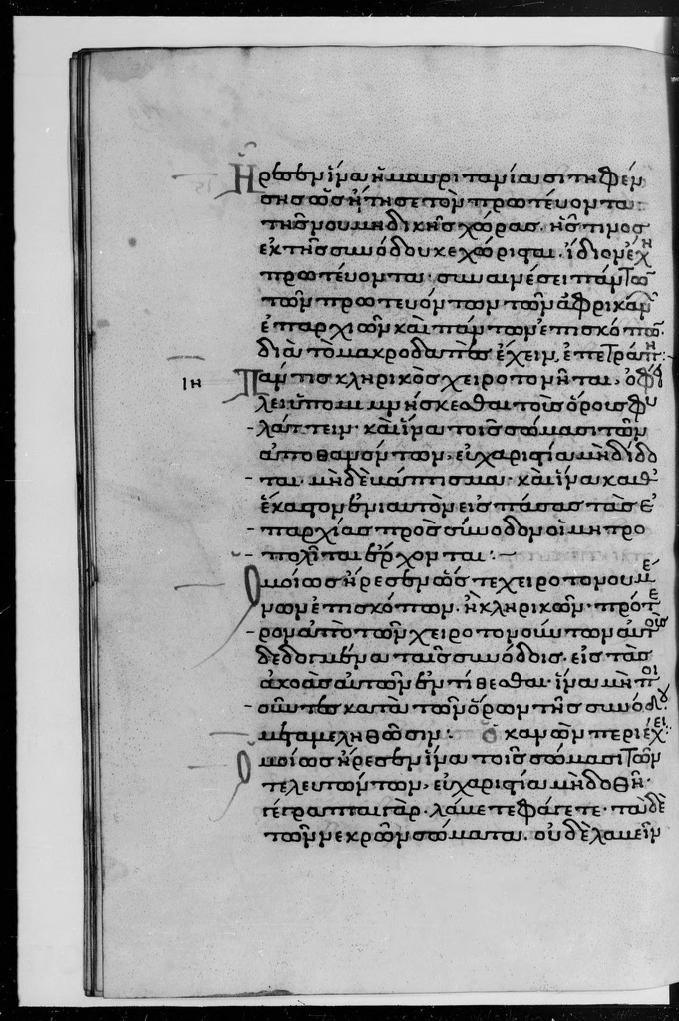 Ἤρεσεν ἵνα ἡ μαυριτανία σιτηφέν
σης ὡς ᾐτησε τὸν πρωτεύοντα
τῆς νουμηδικῆς χώρας. ἧς τινος
ἐκ τῆς συνόδου κεχώρισται. ἴδιον ἔχη
πρωτεύοντα· συναινέσει πάντων
τῶν πρωτευόντων τῶν ἀφρικαν
ἐπαρχιῶν καὶ πάντων ἐπισκόπων.
διὰ τὸ μακροδαπὲς ἔχειν, ἐπετράπη:
ιη Πάντις κληρικὸς χειροτονῆται, ὀφεί
λει ὑπομιμνήσκεσθαι τοὺς ὅρους φυ
λάττειν· καὶ ἵνα τοῖς σώμασι τῶν
ἀποθανόντων, εὐχαριστία μὴ δίδο
ται· μηδὲ βάπτισμα· καὶ ἵνα καθ
ἕκαστον ἐνιαυτὸν εἰς πάσας τὰς ἐ
παρχίας πρὸς σύνοδον οἱ μητρο
πολῖται ἔρχονται:
Ὁμοίως ἤρεσεν ὥστε χειροτονουμέ
νων ἐπισκόπων. ἢ κληρικῶν· πρότε
ρον ἀπὸ τῶν χειροτονούντων αὐτοὺς
δεδογμένα ταῖς συνόδοις. εἰς τὰς
ἀκοὰς αὐτῶν ἐντίθεσθαι· ἵνα μὴ ποι
οῦντες κατὰ τῶν ὅρων τῆς συνόδου
μεταμεληθῶσιν: ὁ κανὼν περιέχει:
Ὁμοίως ἤρεσεν ἵνα τοῖς σώμασι τῶν
τελευτώντων, εὐχαριστία μὴ δοθῇ·
γέγραπται γὰρ· λάβετε φάγετε· τὰ δὲ
τῶν νεκρῶν σώματα. οὐδὲ λαβεῖν